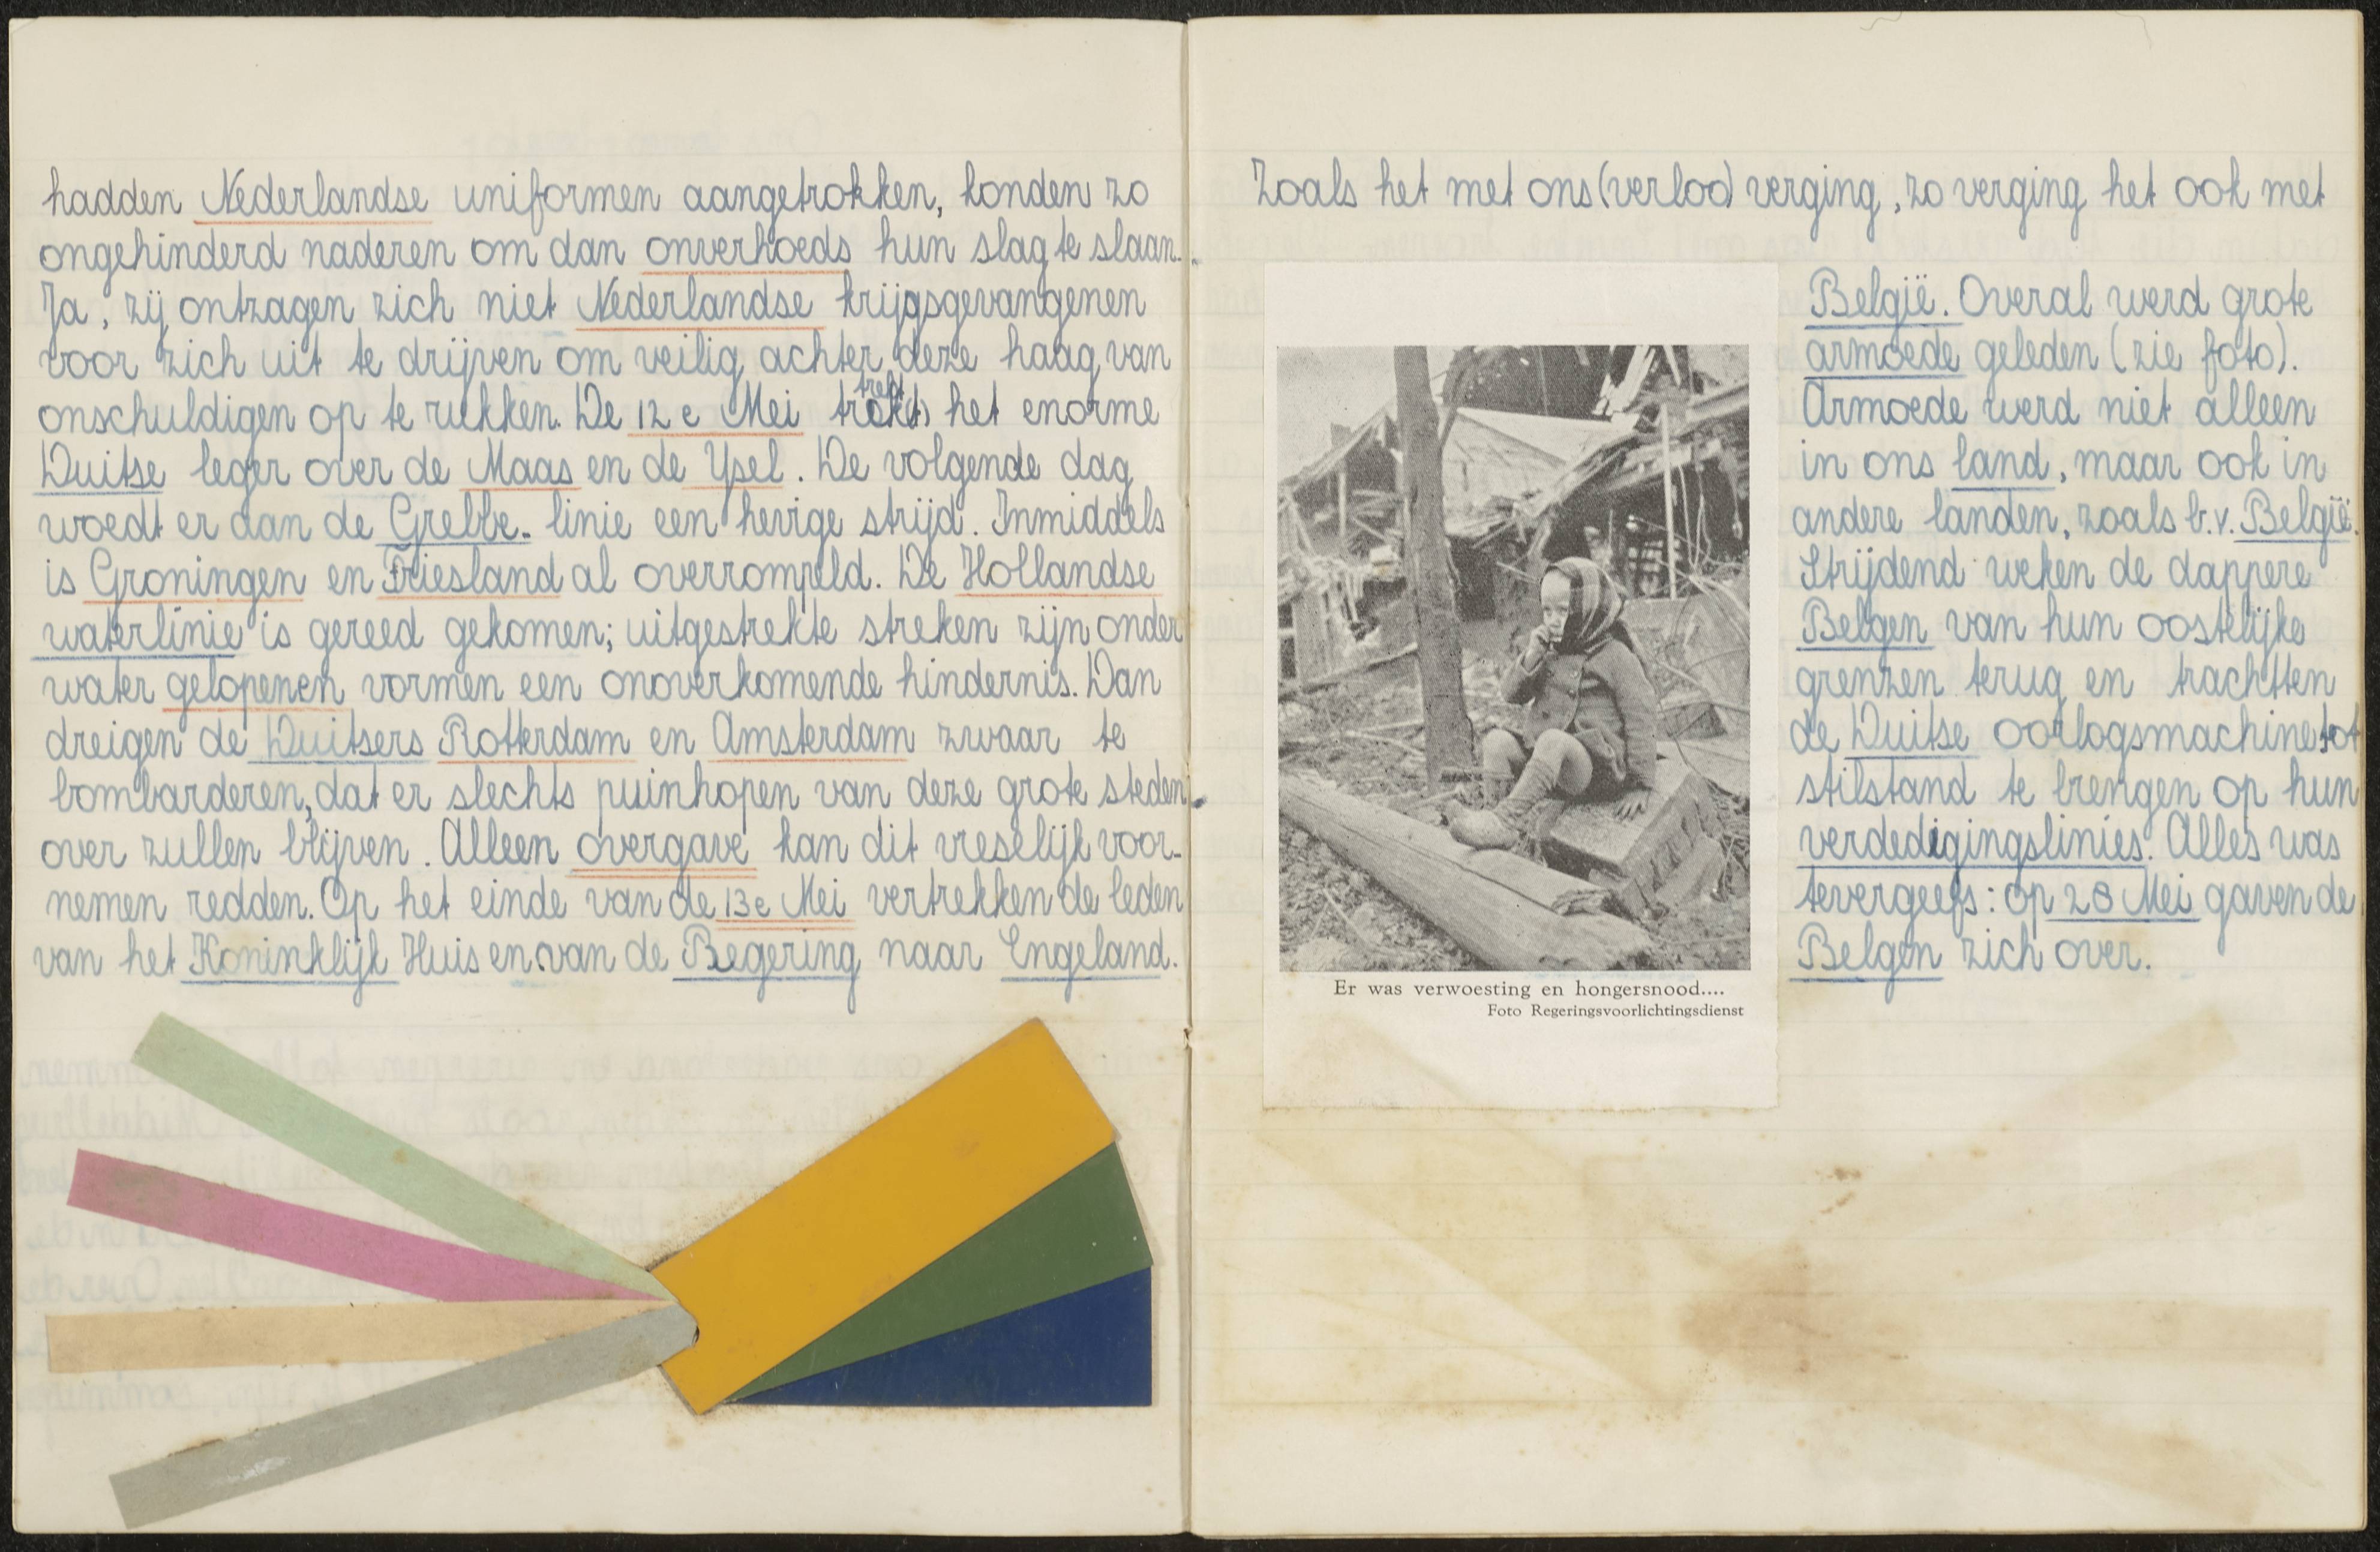 hadden Nederlandse uniformen aangetrokken, konden zo
ongehinderd naderen om dan onverhoeds hun slag te slaan.
Ja, zij ontzagen zich niet Nederlandse krijgsgevangenen
voor zich uit te drijven om veilig achter deze haag van
onschuldigen op te rukken. De 12e Mei trekt het enorme
Duitse leger over de Maas en de Ysel. De volgende dag
woedt er aan de Grebbe- linie een hevige strijd. Inmiddels
is Groningen en Friesland al overrompeld. De Hollandse
waterlinie is gereed gekomen; uitgestrekte streken zijn onder
water gelopenen vormen een onoverkomende hindernis. Dan
dreigen de Duitsers Rotterdam en Amsterdam zwaar te
bombarderen, dat er slechts puinhopen van deze grote steden
over zullen blijven. Alleen overgave kan dit vreselijk voor-
nemen redden. Op het einde van de 13e Mei vertrekken de leden
van het Koninklijk Huis en van de Regering naar Engeland.
Zoals het met ons (verloo) verging, zo verging het ook met
België. Overal werd grote
armoede geleden (zie foto).
Armoede werd niet alleen
in ons land, maar ook in
andere landen, zoals b.v. België.
Strijdend weken de dappere
Belgen van hun oostelijke
grenzen terug en trachtten
de Duitse oorlogsmachine tot
stilstand te brengen op hun
verdedigingslinies. Alles was
tevergeefs: op 28 Mei gaven de
Belgen zich over.
Er was verwoesting en hongersnood....
Foto Regeringsvoorlichtingsdienst